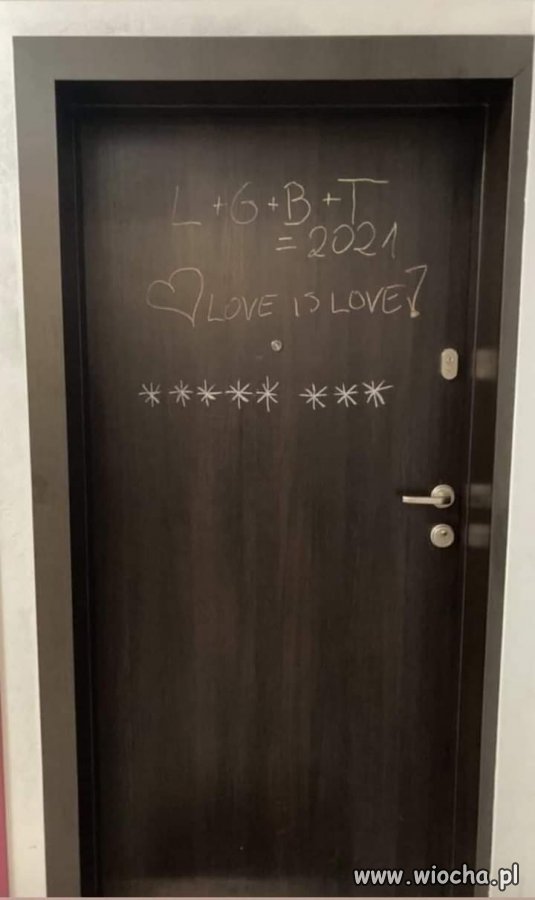 L+G+B+T
=2021
♡LOVE IS LOVE!
***** ***
www.wiocha.pl